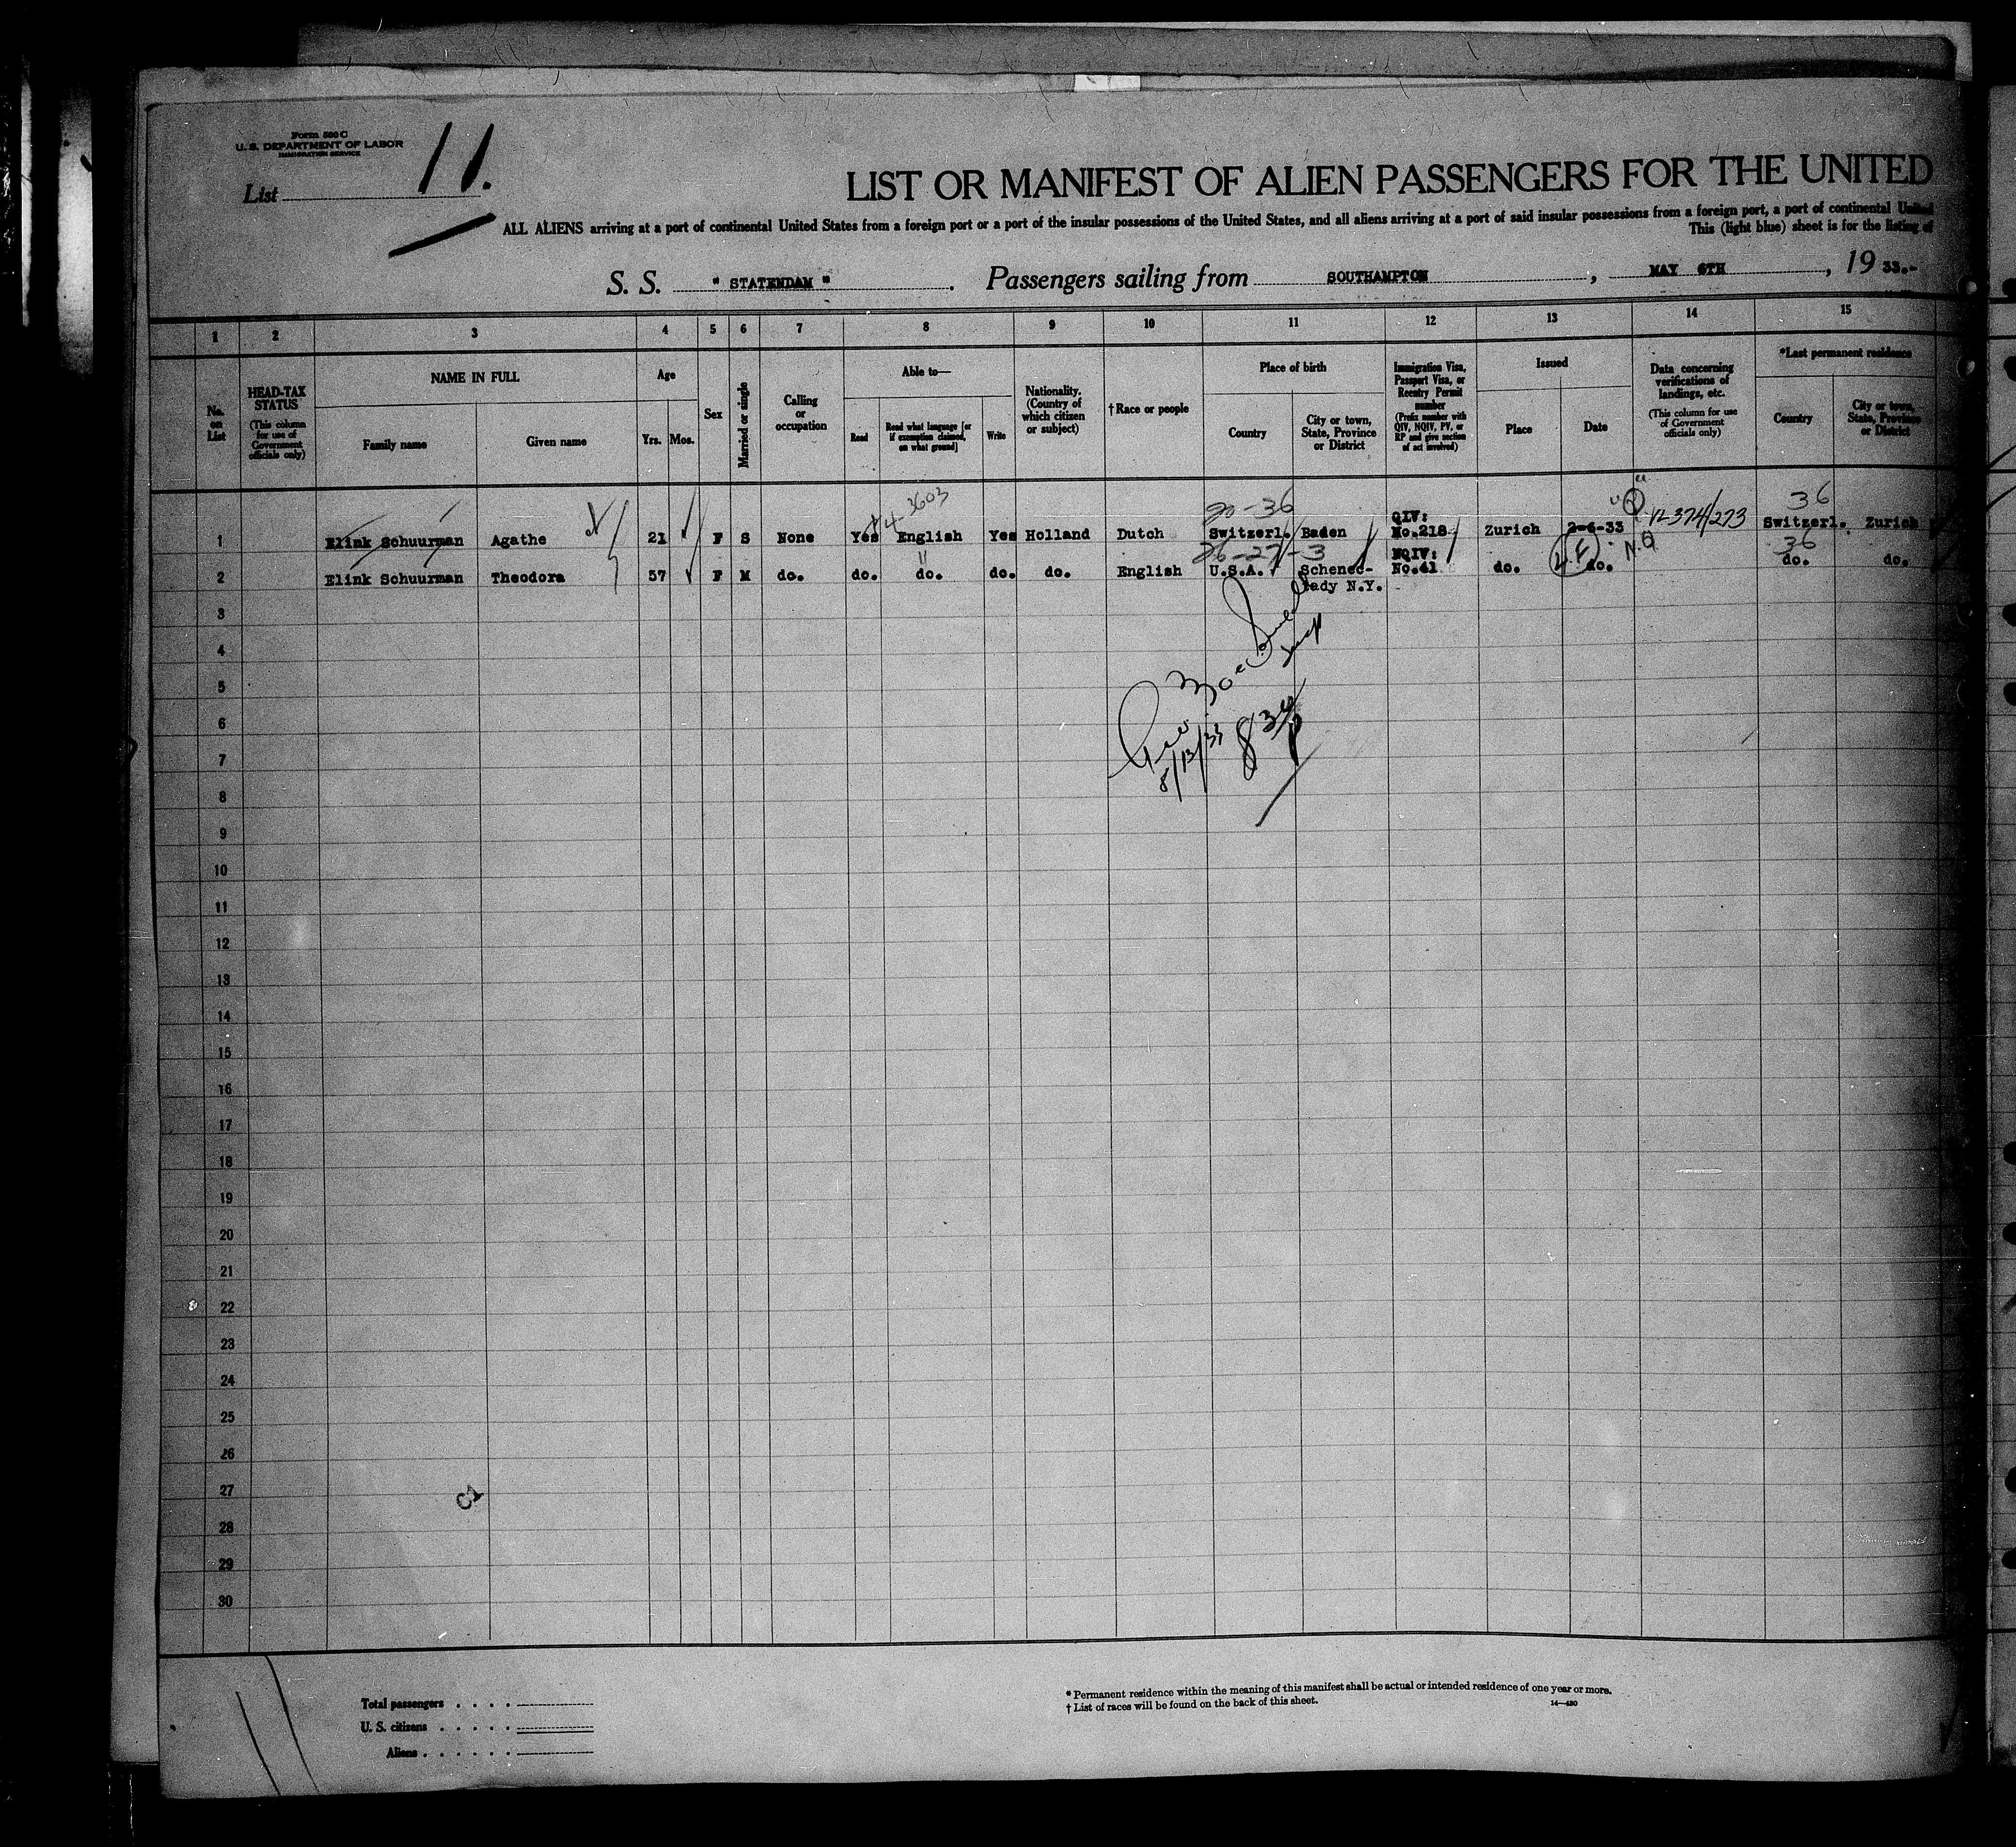 Form 500 C
U. S. DEPARTMENT OF LABOR
IMMIGRATION SERVICE
List 11.
LIST OR MANIFEST OF ALIEN PASSENGERS FOR THE UNITED
ALL ALIENS arriving at a port of continental United States from a foreign port or a port of the insular possessions of the United States, and all aliens arriving at a port of said insular possessions from a foreign port, a port of continental United
This (light blue) sheet is for the listing of
S. S. " STATENDAM " . Passengers sailing from SOUTHAMPTON , MAY 6TH , 19 33.-
1 2 3 4 5 6 7 8 9 10 11 12 13 14 15
No. on List
HEAD-TAX STATUS
(This column for use of Government officials only)
NAME IN FULL
Family name
Given name
Age
Yrs. Mos.
Sex
Married or single
Calling or occupation
Able to—
Read
Read what language [or if exemption claimed, on what ground]
Write
Nationality. (Country of which citizen or subject)
† Race or people
Place of birth
Country
City or town, State, Province or District
Immigration Visa, Passport Visa, or Reentry Permit number
(Prefix number with QIV, NQIV, PV, or RP and give section of act involved)
Issued
Place
Date
Data concerning verifications of landings, etc.
(This column for use of Government officials only)
*Last permanent residence
Country
City or town, State, Province or District
4-3603 20-36 "Q" 12-374/273 36
1 Elink Schuurman Agathe 21 F S None Yes English Yes Holland Dutch Switzerl. Baden QIV: No.218 Zurich 2-6-33 Switzerl. Zurich
" 26-27-3 N.Q 36
2 Elink Schuurman Theodora 57 F M do. do. do. do. do. English U.S.A. Schenec-tady N.Y. NQIV: No.41 do. do. do. do.
3
4
5
6
7
8
9
10
11
12
13
14
15
16
17
18
19
20
21
22
23
24
25
26
27
28
29
30
C1
Total passengers . . . .
U. S. citizens . . . . .
Aliens . . . . . .
* Permanent residence within the meaning of this manifest shall be actual or intended residence of one year or more.
† List of races will be found on the back of this sheet.
14—430